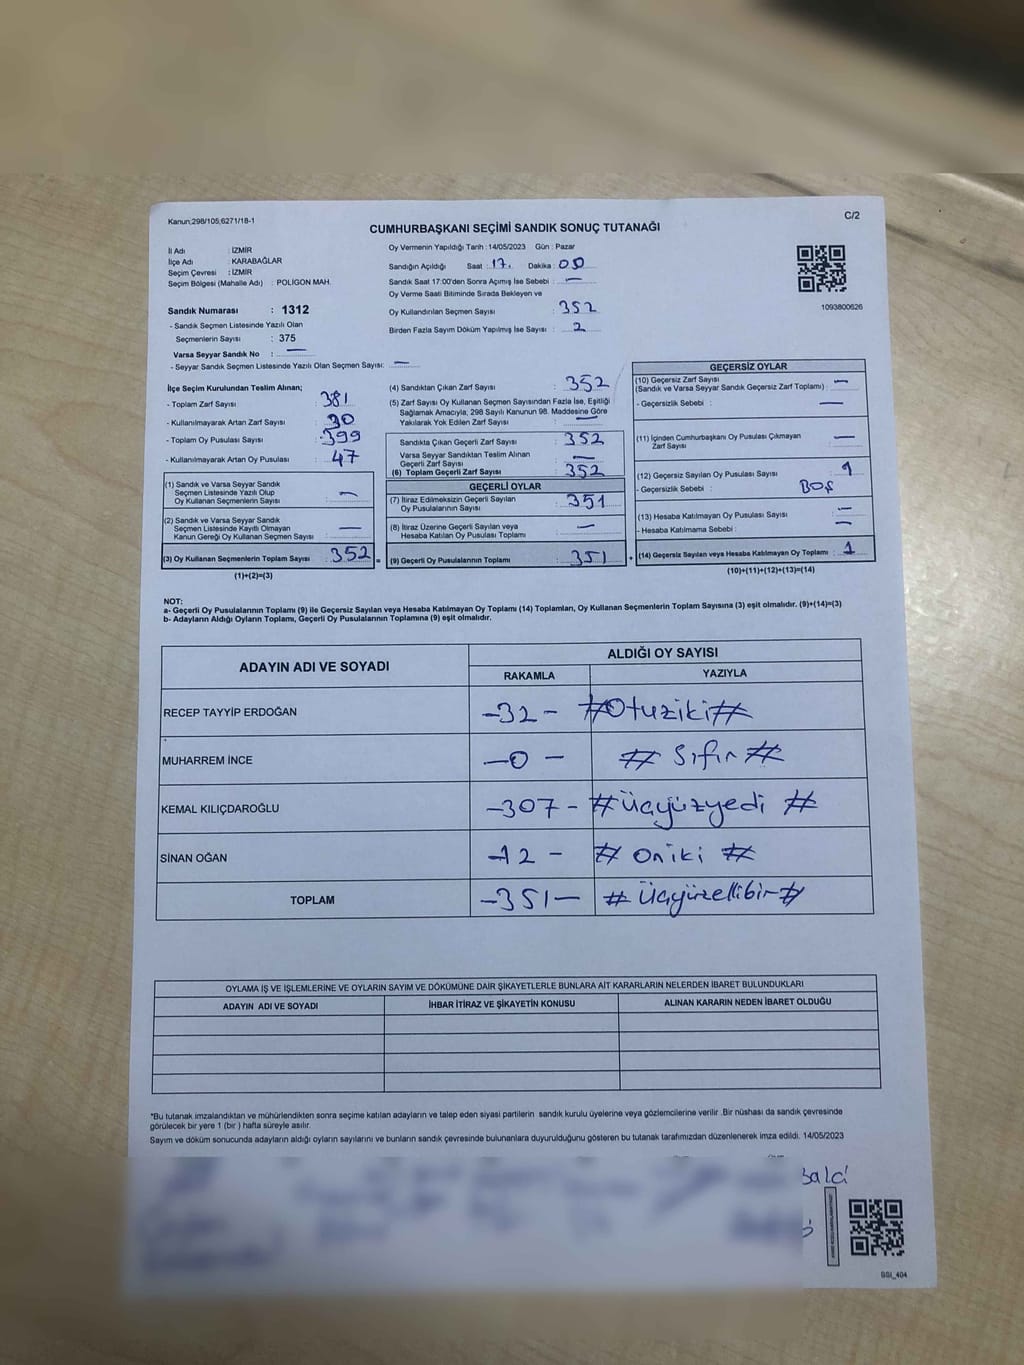 Kanun;298/105,6271/18-1
C/2
CUMHURBAŞKANI SEÇİMİ SANDIK SONUÇ TUTANAĞI
İl Adı : İZMİR
İlçe Adı : KARABAĞLAR
Seçim Çevresi : İZMİR
Seçim Bölgesi (Mahalle Adı) : POLİGON MAH.
Oy Vermenin Yapıldığı Tarih :14/05/2023 Gün : Pazar
Sandığın Açıldığı Saat : 17. Dakika : 00
Sandık Saat 17:00'den Sonra Açımış İse Sebebi : —
Oy Verme Saati Bitiminde Sırada Bekleyen ve
Oy Kullandırılan Seçmen Sayısı : 352
Birden Fazla Sayım Döküm Yapılmış İse Sayısı : 2
1093800626
Sandık Numarası : 1312
- Sandık Seçmen Listesinde Yazılı Olan
Seçmenlerin Sayısı : 375
Varsa Seyyar Sandık No : —
- Seyyar Sandık Seçmen Listesinde Yazılı Olan Seçmen Sayısı: —
İlçe Seçim Kurulundan Teslim Alınan;
- Toplam Zarf Sayısı : 381
- Kullanılmayarak Artan Zarf Sayısı : 30
- Toplam Oy Pusulası Sayısı : 399
- Kullanılmayarak Artan Oy Pusulası : 47
(1) Sandık ve Varsa Seyyar Sandık
Seçmen Listesinde Yazılı Olup
Oy Kullanan Seçmenlerin Sayısı : —
(2) Sandık ve Varsa Seyyar Sandık
Seçmen Listesinde Kayıtlı Olmayan
Kanun Gereği Oy Kullanan Seçmen Sayısı : —
(3) Oy Kullanan Seçmenlerin Toplam Sayısı : 352 =
(1)+(2)=(3)
(4) Sandıktan Çıkan Zarf Sayısı : 352
(5) Zarf Sayısı Oy Kullanan Seçmen Sayısından Fazla İse, Eşitliği
Sağlamak Amacıyla, 298 Sayılı Kanunun 98. Maddesine Göre
Yakılarak Yok Edilen Zarf Sayısı : —
Sandıkta Çıkan Geçerli Zarf Sayısı : 352
Varsa Seyyar Sandıktan Teslim Alınan
Geçerli Zarf Sayısı : —
(6) Toplam Geçerli Zarf Sayısı : 352
GEÇERLİ OYLAR
(7) İtiraz Edilmeksizin Geçerli Sayılan
Oy Pusulalarının Sayısı : 351
(8) İtiraz Üzerine Geçerli Sayılan veya
Hesaba Katılan Oy Pusulası Toplamı : —
(9) Geçerli Oy Pusulalarının Toplamı : 351 +
GEÇERSİZ OYLAR
(10) Geçersiz Zarf Sayısı
(Sandık ve Varsa Seyyar Sandık Geçersiz Zarf Toplamı) : —
- Geçersizlik Sebebi : —
(11) İçinden Cumhurbaşkanı Oy Pusulası Çıkmayan
Zarf Sayısı : —
(12) Geçersiz Sayılan Oy Pusulası Sayısı : 1
- Geçersizlik Sebebi : BOŞ
(13) Hesaba Katılmayan Oy Pusulası Sayısı : —
- Hesaba Katılmama Sebebi : —
(14) Geçersiz Sayılan veya Hesaba Katılmayan Oy Toplamı : 1
(10)+(11)+(12)+(13)=(14)
NOT:
a- Geçerli Oy Pusulalarının Toplamı (9) ile Geçersiz Sayılan veya Hesaba Katılmayan Oy Toplamı (14) Toplamları, Oy Kullanan Seçmenlerin Toplam Sayısına (3) eşit olmalıdır. (9)+(14)=(3)
b- Adayların Aldığı Oyların Toplamı, Geçerli Oy Pusulalarının Toplamına (9) eşit olmalıdır.
ADAYIN ADI VE SOYADI ALDIĞI OY SAYISI
RAKAMLA YAZIYLA
RECEP TAYYİP ERDOĞAN -32- #Otuziki#
MUHARREM İNCE -0- # Sıfır #
KEMAL KILIÇDAROĞLU -307- #Üçyüzyedi #
SİNAN OĞAN -12- # Oniki #
TOPLAM -351- # Üçyüzellibir#
OYLAMA İŞ VE İŞLEMLERİNE VE OYLARIN SAYIM VE DÖKÜMÜNE DAİR ŞİKAYETLERLE BUNLARA AİT KARARLARIN NELERDEN İBARET BULUNDUKLARI
ADAYIN ADI VE SOYADI İHBAR İTİRAZ VE ŞİKAYETİN KONUSU ALINAN KARARIN NEDEN İBARET OLDUĞU
*Bu tutanak imzalandıktan ve mühürlendikten sonra seçime katılan adayların ve talep eden siyasi partilerin sandık kurulu üyelerine veya gözlemcilerine verilir .Bir nüshası da sandık çevresinde
görülecek bir yere 1 (bir ) hafta süreyle asılır.
Sayım ve döküm sonucunda adayların aldığı oyların sayılarını ve bunların sandık çevresinde bulunanlara duyurulduğunu gösteren bu tutanak tarafımızdan düzenlenerek imza edildi. 14/05/2023